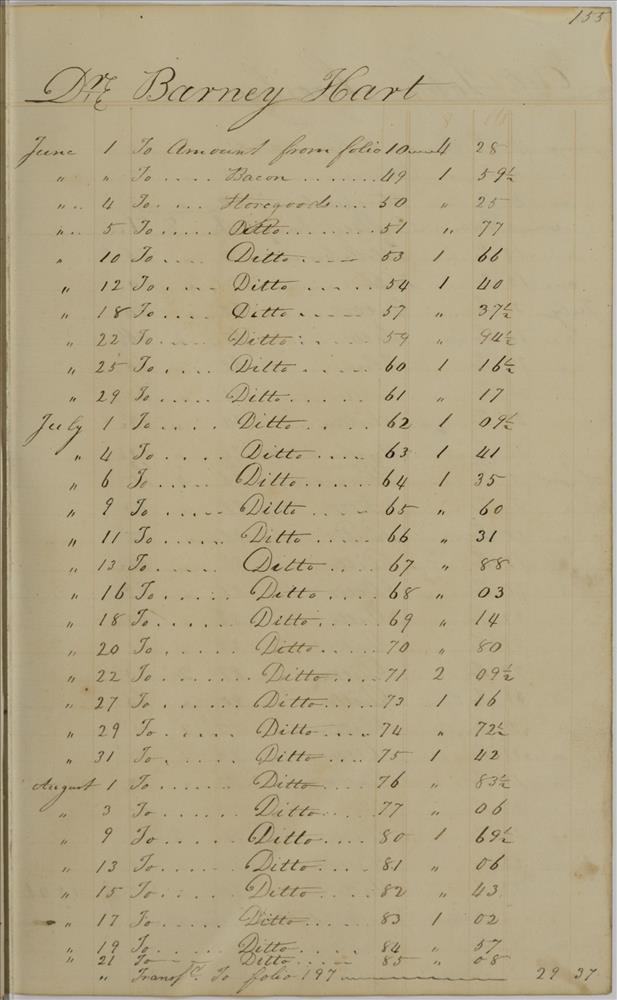 155
Dr. Barney Hart
June 1 To Amount from folio 10 4 28
" " To .... Bacon ........ 49 1 59½
" 4 To .... Storegoods .... 50 " 25
" 5 To ..... Ditto ........ 51 " 77
" 10 To .... Ditto ..... 53 1 66
" 12 To .... Ditto ..... 54 1 40
" 18 To .... Ditto ..... 57 " 37½
" 22 To .... Ditto ..... 59 " 94½
" 25 To .... Ditto ..... 60 1 16½
" 29 To ..... Ditto ..... 61 " 17
July 1 To .... Ditto ..... 62 1 09½
" 4 To .... Ditto ..... 63 1 41
" 6 To ..... Ditto ..... 64 1 35
" 9 To ..... Ditto ..... 65 " 60
" 11 To ..... Ditto ..... 66 " 31
" 13 To ..... Ditto .... 67 " 88
" 16 To ..... Ditto .... 68 " 03
" 18 To ...... Ditto .... 69 " 14
" 20 To ...... Ditto .... 70 " 80
" 22 To ....... Ditto .... 71 2 09½
" 27 To ...... Ditto .... 73 1 16
" 29 To ..... Ditto .... 74 " 72½
" 31 To ..... Ditto .... 75 1 42
August 1 To ...... Ditto .... 76 " 83½
" 3 To ...... Ditto .... 77 " 06
" 9 To ..... Ditto .... 80 1 69½
" 13 To ..... Ditto .... 81 " 06
" 15 To ..... Ditto .... 82 " 43
" 17 To ..... Ditto .... 83 1 02
" 19 To ..... Ditto ..... 84 " 57
" 21 To ..... Ditto ..... 85 " 08
" Transfd. To folio 197 29 37